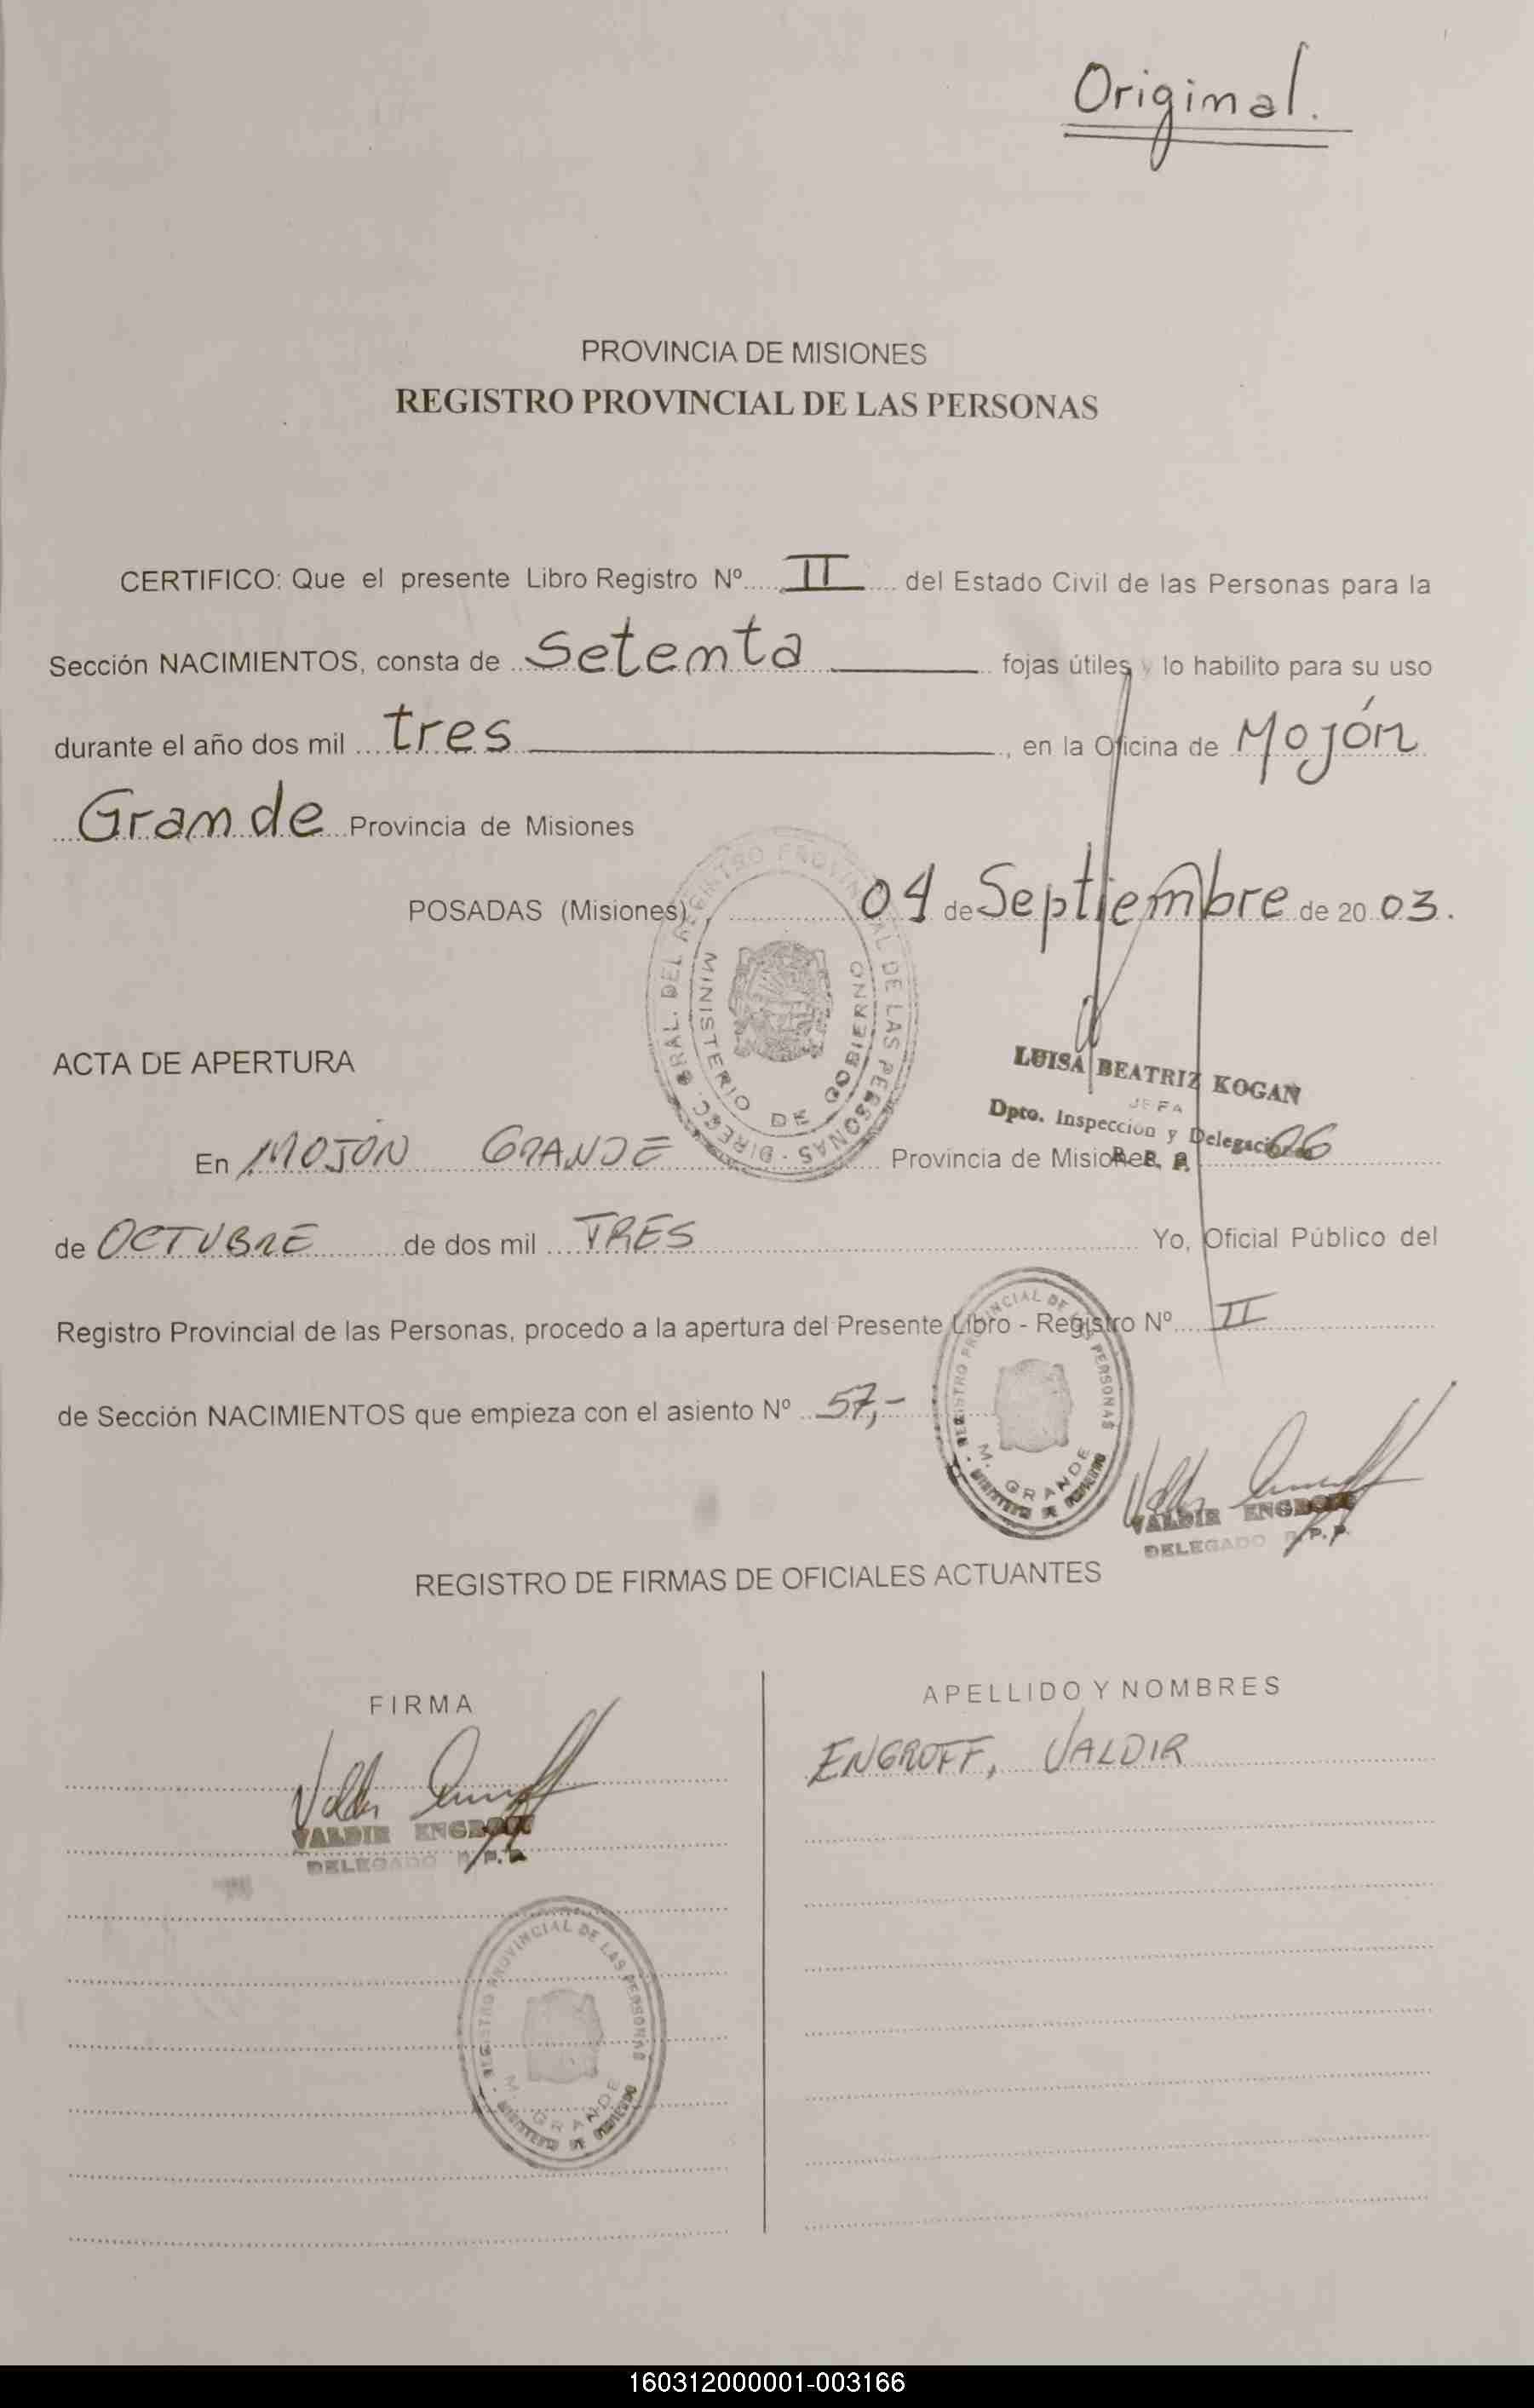 Original.
PROVINCIA DE MISIONES
REGISTRO PROVINCIAL DE LAS PERSONAS
CERTIFICO: Que el presente Libro Registro Nº II del Estado Civil de las Personas para la
Sección NACIMIENTOS, consta de Setenta fojas útiles y lo habilito para su uso
durante el año dos mil tres, en la Oficina de Mojón
Grande Provincia de Misiones
POSADAS (Misiones), 04 de Septiembre de 2003.
DIREC. GRAL. DEL REGISTRO PROVINCIAL DE LAS PERSONAS
MINISTERIO DE GOBIERNO
LUISA BEATRIZ KOGAN
JEFA
Dpto. Inspeccion y Delegaciones
R. P. P.
ACTA DE APERTURA
En MOJON GRANDE Provincia de Misiones, a 06
de OCTUBRE de dos mil TRES Yo, Oficial Público del
Registro Provincial de las Personas, procedo a la apertura del Presente Libro - Registro Nº II
de Sección NACIMIENTOS que empieza con el asiento Nº 57,-
REGISTRO PROVINCIAL DE LAS PERSONAS
M. GRANDE
MINISTERIO DE GOBIERNO
VALDIR ENGROFF
DELEGADO R. P. P.
REGISTRO DE FIRMAS DE OFICIALES ACTUANTES
FIRMA
APELLIDO Y NOMBRES
ENGROFF, VALDIR
VALDIR ENGROFF
DELEGADO R. P. P.
REGISTRO PROVINCIAL DE LAS PERSONAS
M. GRANDE
MINISTERIO DE GOBIERNO
160312000001-003166